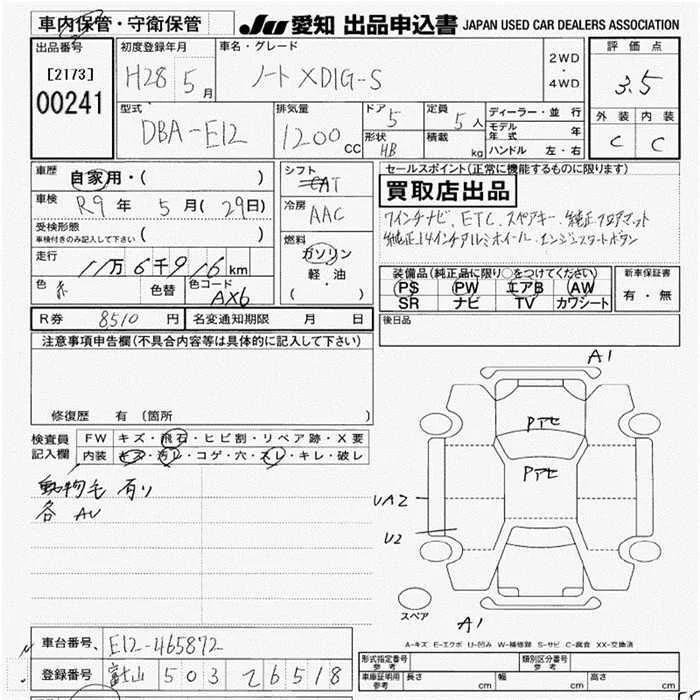 車内保管・守衛保管
JU 愛知 出品申込書 JAPAN USED CAR DEALERS ASSOCIATION
出品番号
[2173]
00241
初度登録年月
H28 5月
車名・グレード
ノート XDIG-S
2WD
・
4WD
評価点
3.5
外装 内装
C C
型式
DBA-E12
排気量
1200 CC
ドア
5
形状
HB
定員
5人
積載
kg
ディーラー・並行
モデル年式 年
ハンドル 左・右
車歴 自家用・( )
車検 R9年 5月(29日)
受検形態
車検付きのみ記入して下さい ( )
走行 11万6千916km
色 色替 色コード
AX6
シフト
CAT
冷房
AAC
燃料
ガソリン
軽・油
( )
セールスポイント(正常に機能するものに限ります)
買取店出品
7インチナビ、ETC、スペアキー、純正フロアマット
純正14インチアルミホイール、エンジンスタートボタン
装備品(純正品に限り○をつけてください)
PS PW エアB AW
SR ナビ TV カワシート
新車保証書
有・無
R券 8510円 名変通知期限 月 日
後日品
注意事項申告欄(不具合内容等は具体的に記入して下さい)
修復歴 有 (箇所 )
検査員
記入欄
FW キズ・飛石・ヒビ割・リペア跡・X要
内装 キズ・汚レ・コゲ・穴・スレ・キレ・破レ
動物毛 有り
各 AU
A1
Pアセ
Pアセ
UA2
U2
スペア
A1
A-キズ E-エクボ U-凹み W-補修跡 S-サビ C-腐食 XX-交換済
車台番号 E12-465872
登録番号 富士山 503 て 6518
形式指定番号
参考
類別区分番号
参考
車庫証明用
参考
長さ cm 幅 cm 高さ cm